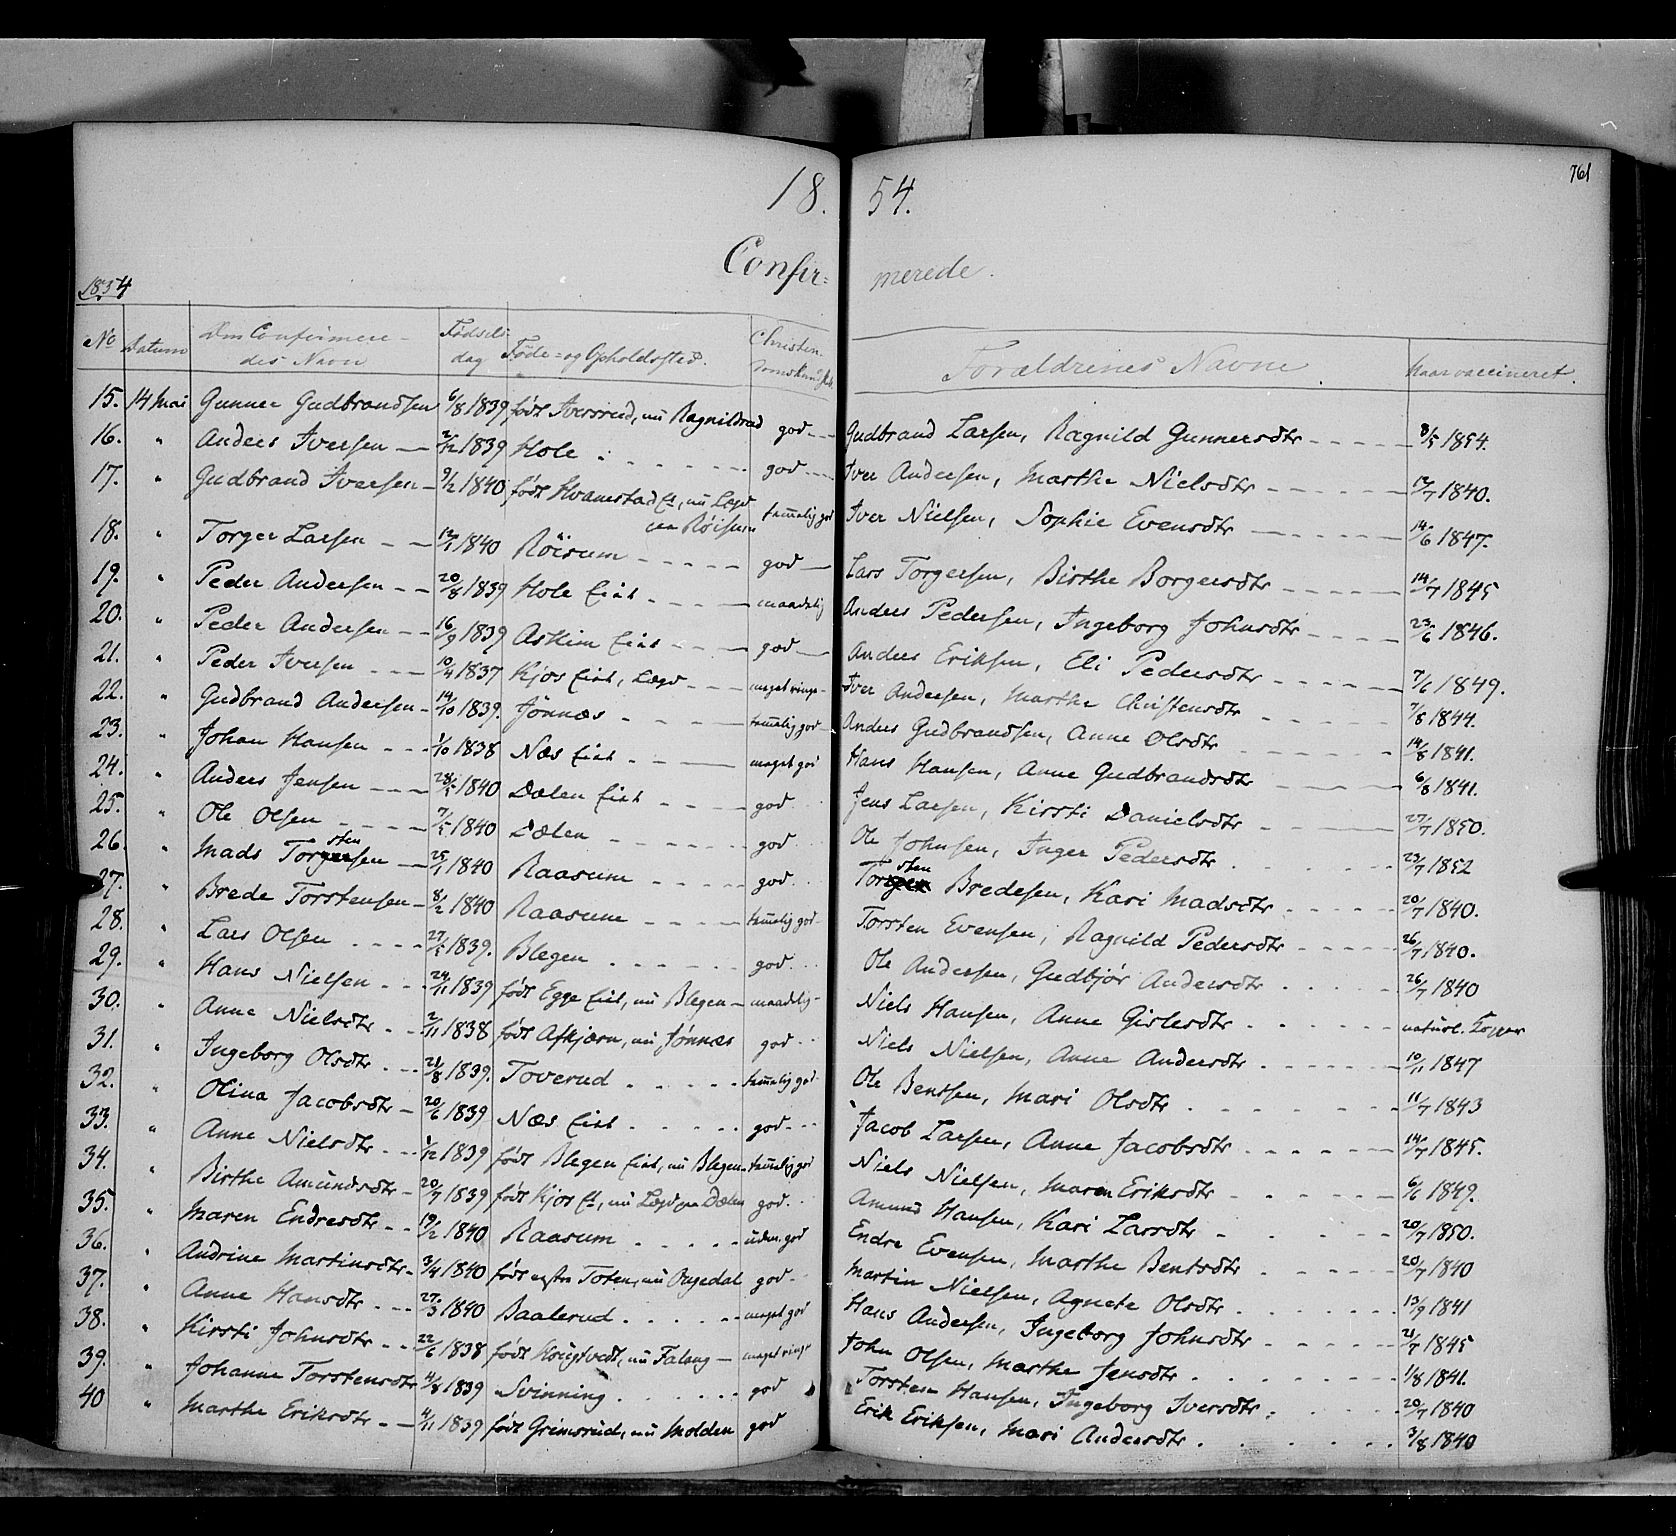 761
18. 54.
Confir= merede.
1854
No Datum Den Confirmere- des Navn Fødsels dag Føde= og Opholdssted. Christen- domskundskab Forældrenes Navne Naar vaccineret.
15. 14 Mai Gunner Gudbrandsen 6/8 1839 født Iversrud, nu Ragnildrud god Gudbrand Larsen, Ragnild Gunnersdtr 8/5 1854.
16. " Anders Iversen 2/12 1839 Hole god Iver Andersen, Marthe Nielsdtr 17/7 1840.
17. " Gudbrand Iversen 9/2 1840 født Hvamstad Et, nu Lægd paa Röisum temmelig god Iver Nielsen, Sophie Evensdtr 14/6 1847.
18. " Torger Larsen 12/1 1840 Röisum god Lars Torgersen, Birthe Borgersdtr 14/7 1845
19. " Peder Andersen 20/8 1839 Hole Eiet maadelig Anders Pedersen, Ingeborg Johnsdtr 23/6 1846.
20. " Peder Andersen 16/9 1839 Askim Eiet god Anders Eriksen, Eli Pedersdtr 7/6 1849.
21. " Peder Iversen 10/4 1837 Kjos Eiet, Lægd meget ringe Iver Andersen, Marthe Christensdtr 7/8 1844.
22. " Gudbrand Andersen 14/10 1839. Jönnæs temmelig god Anders Gudbrandsen, Anne Olsdtr 14/8 1841.
23. " Johan Hansen 1/10 1838 Næs Eiet meget god Hans Hansen, Anne Gudbrandsdtr 6/8 1841.
24. " Anders Jensen 28/5 1840 Dælen Eiet god Jens Larsen, Kirsti Danielsdtr 27/7 1850.
25. " Ole Olsen 7/5 1840 Dælen god Ole Johnsen, Inger Pedersdtr 23/7 1852
26. " Mads Torstensen 25/1 1840 Raasum god Torsten Bredesen, Kari Madsdtr 20/7 1840.
27. " Brede Torstensen 8/2 1840 Raasum temmelig god Torsten Evensen, Ragnild Pedersdtr 26/7 1840.
28. " Lars Olsen 27/5 1839. Blegen god Ole Andersen, Gudbjör Andersdtr 26/7 1840
29. " Hans Nielsen 24/11 1839 født Egge Eiet, nu Blegen maadelig Niels Hansen, Anne Gislesdtr naturl. Kopper
30. " Anne Nielsdtr 2/11 1838 født Afkjærn, nu Jönnæs god Niels Nielsen, Anne Andersdtr 10/11 1847
31. " Ingeborg Olsdtr 21/8 1839. Toverud temmelig god Ole Bentsen, Mari Olsdtr 11/7 1843
32. " Olina Jacobsdtr 20/6 1839 Næs Eiet god Jacob Larsen, Anne Jacobsdtr 14/7 1845.
33. " Anne Nielsdtr 1/12 1839 født Blegen Eiet, nu Blegen temmelig god Niels Nielsen, Maren Eriksdtr 6/6 1849.
34. " Birthe Amundsdtr 20/7 1839 født Kjos Et, nu Lægd paa Dælen god. Amund Hansen, Kari Larsdtr 20/7 1850.
35. " Maren Endresdtr 19/2 1840 Raasum udm. god Endre Evensen, Marthe Bentsdtr 20/7 1840
36. " Andrine Martinsdtr 3/4 1840 født østre Toten, nu Aagedal god Martin Nielsen, Agnete Olsdtr 13/9 1841
37. " Anne Hansdtr 27/3 1840 Baalerud meget god Hans Andersen, Ingeborg Johnsdtr 21/7 1845
38. " Kirsti Johnsdtr 22/6 1838 født Hougtvedt, nu Falang meget ringe John Olsen, Marthe Jensdtr 1/8 1841.
39. " Johanne Torstensdtr 11/8 1839 Svinning god Torsten Hansen, Ingeborg Iversdtr 20/7 1840
40 " Marthe Eriksdtr 4/11 1839 født Grimsrud, nu Molden god Erik Eriksen, Mari Andersdtr 3/8 1840